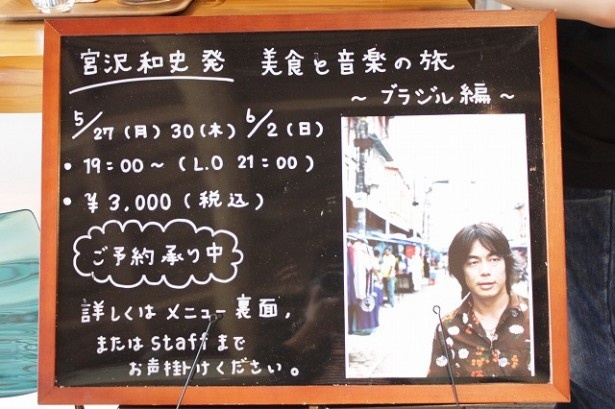 宮沢和史発 美食と音楽の旅
～ブラジル編～
5/27(月)30(木)6/2(日)
・19:00～(L.O 21:00)
・¥3,000(税込)
ご予約承り中
詳しくはメニュー裏面,
またはstaffまで
お声掛けください。